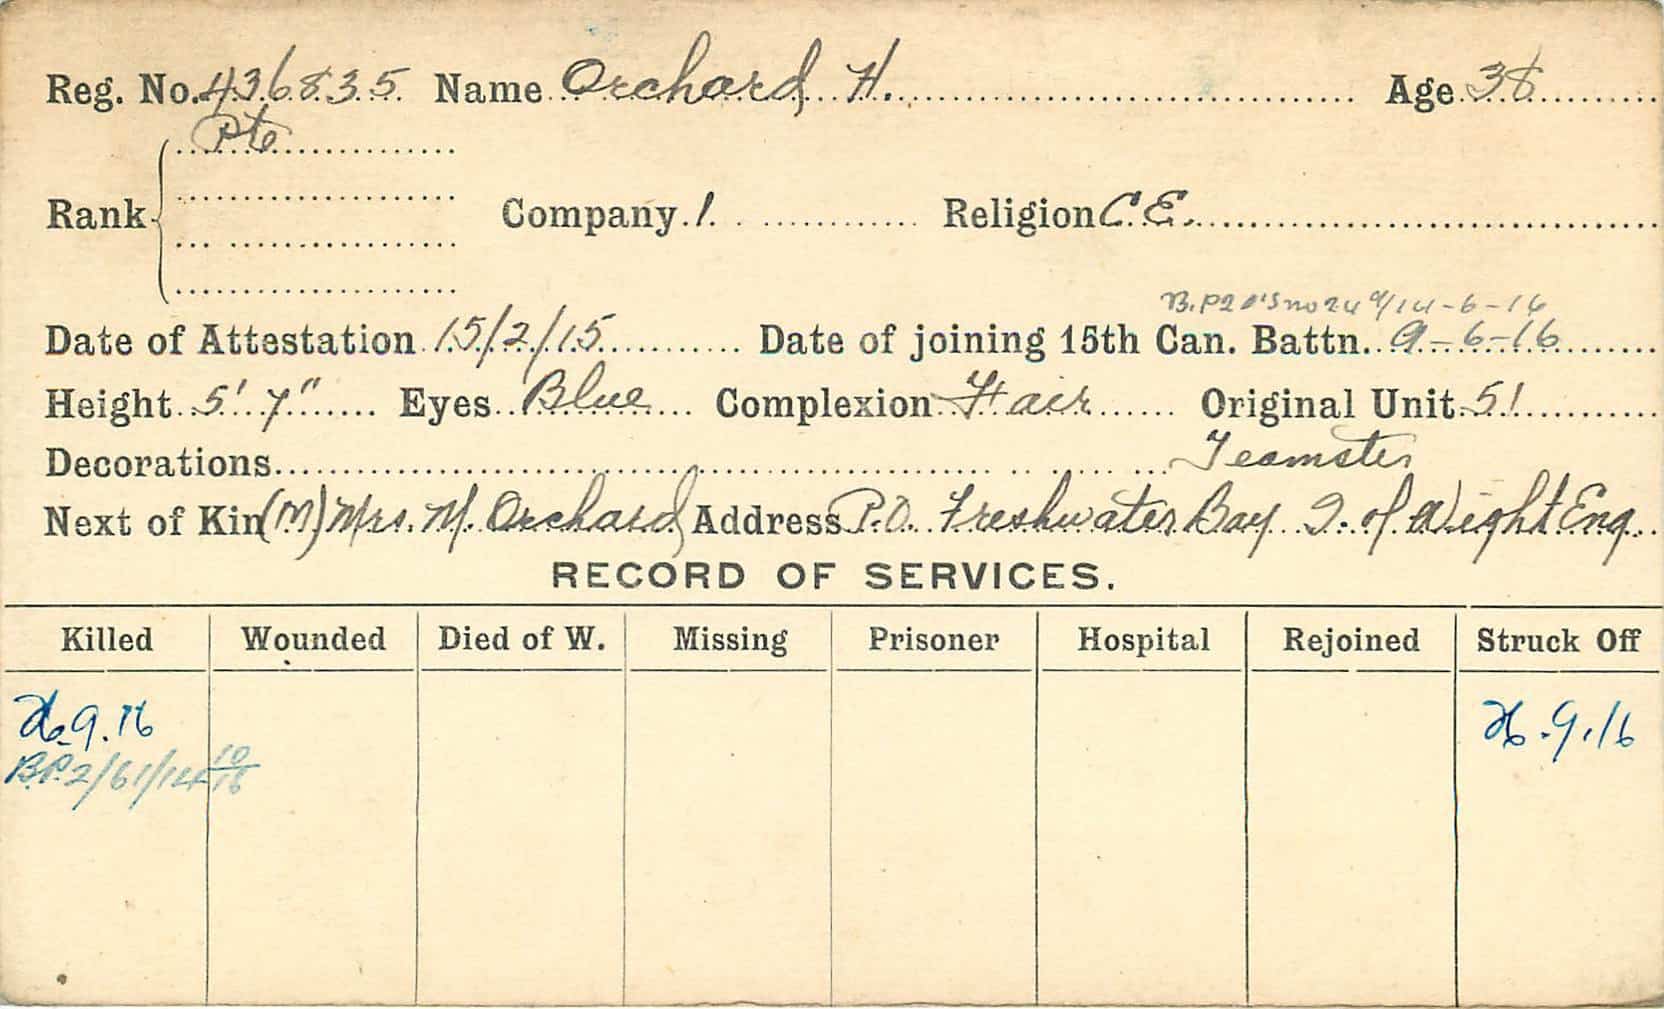 Reg. No. 436835 Name Orchard H. Age 38
Pte
Rank Company 1 Religion C.E.
14-6-16
Date of Attestation 15/2/15 Date of joining 15th Can. Battn. 9-6-16
Height 5' 7" Eyes Blue Complexion Fair Original Unit 51
Decorations Teamster
Next of Kin (M) Mrs. M. Orchard Address P.O. Freshwater Bay I. of Wight Eng.
RECORD OF SERVICES.
Killed Wounded Died of W. Missing Prisoner Hospital Rejoined Struck Off
26.9.16 26.9.16
B.P.2/61/14 10/16